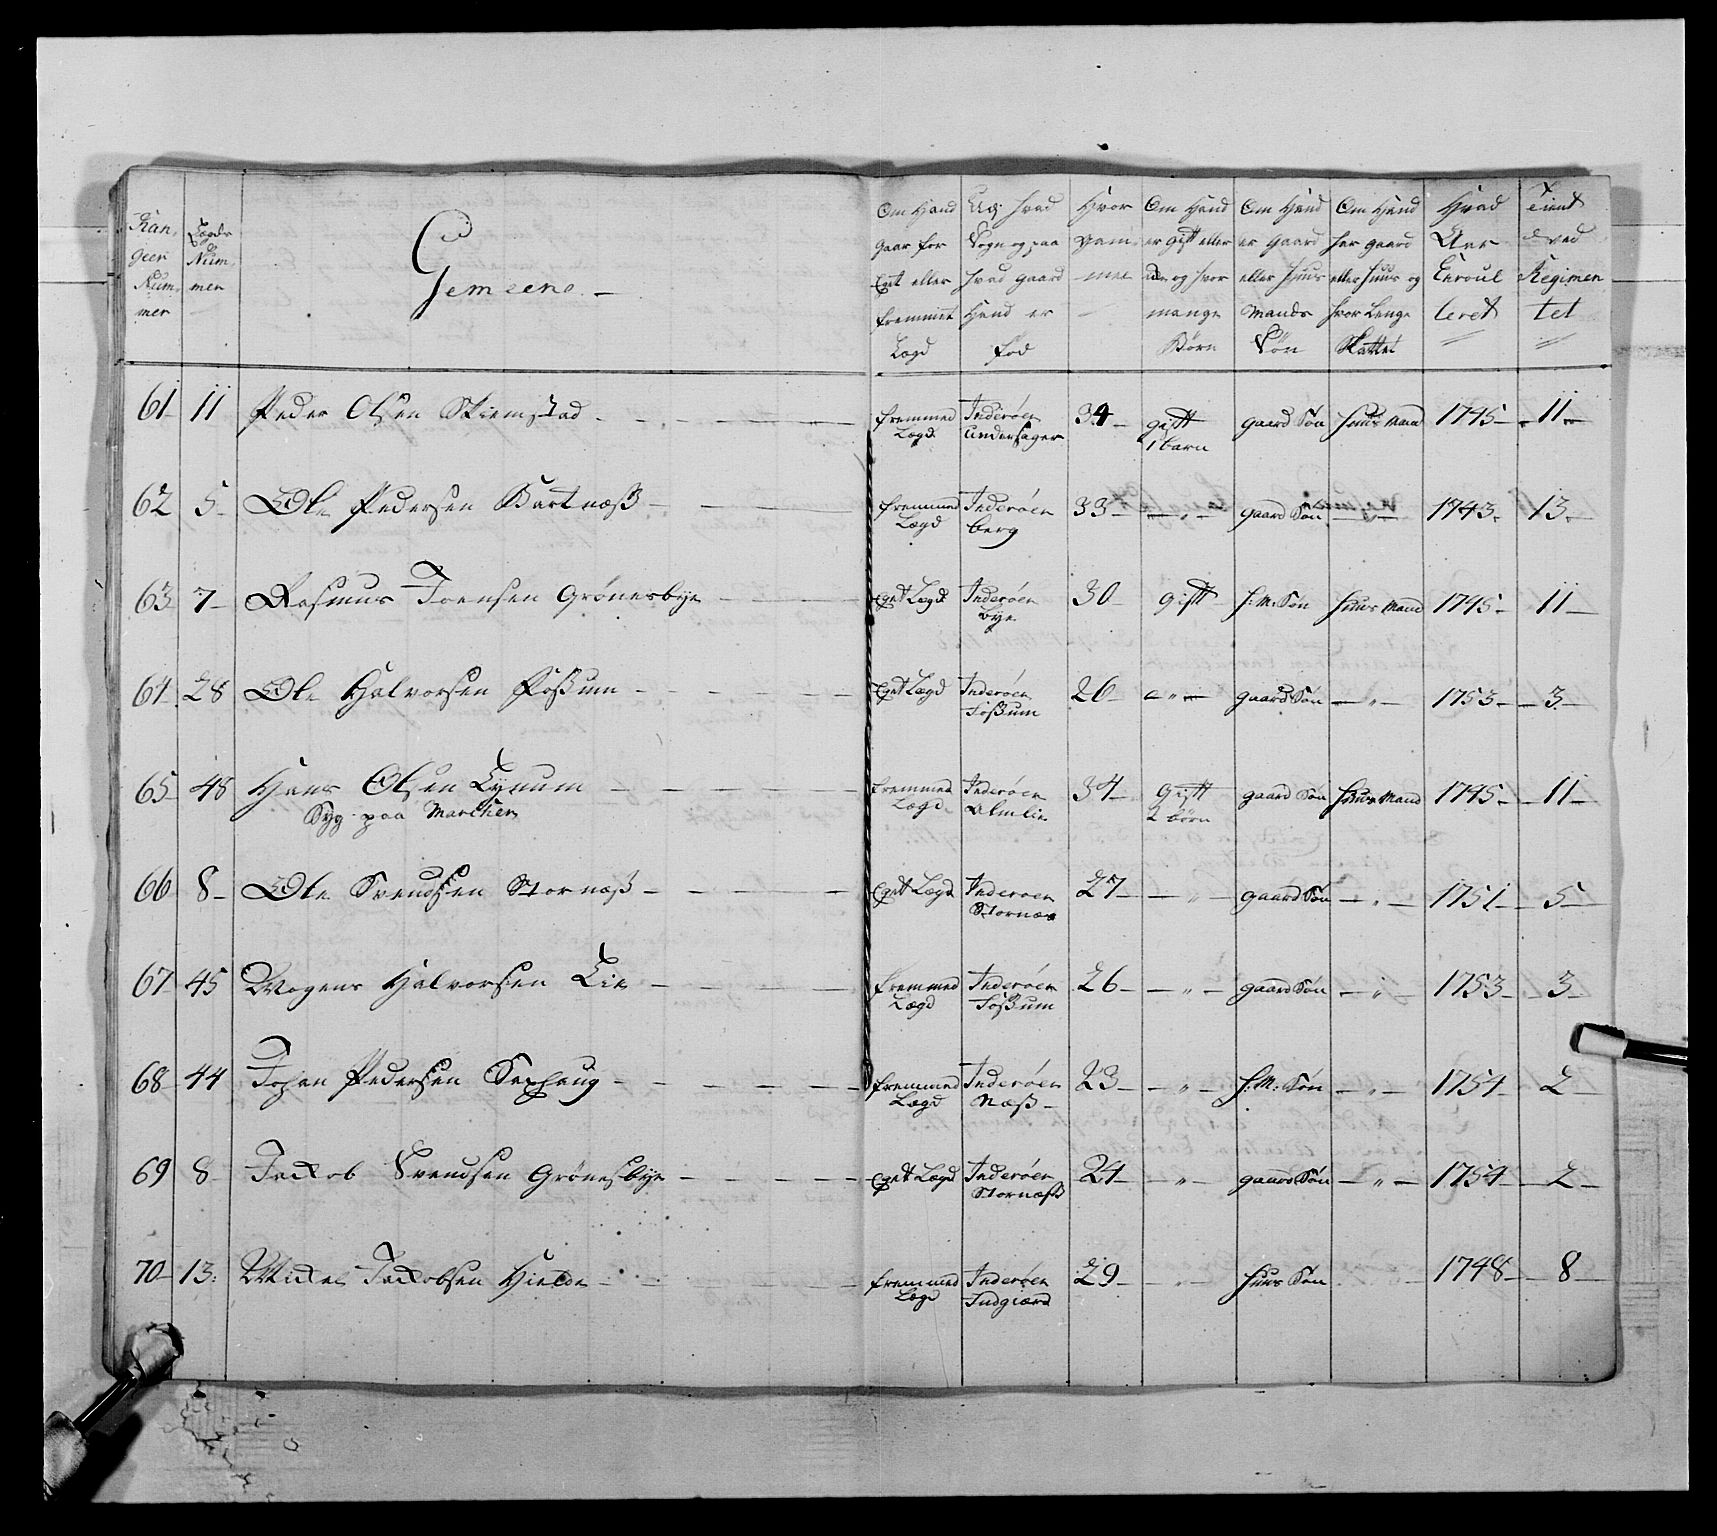 Ran,
geer
Num,
mer
Lægds
Num,
mer
Gemeene
Om Hand
gaar for
Eget eller
fremmet
Lægd
Ud: hvad
Sogn og paa
hvad gaard
Hand er
fød
Hvor
gam
mel
Om Hand
er gift eller
ei og hvor
mange
Børn
Om Hand
er gaard
eller Huus
Mands
Søn
Om Hand
har gaard
eller Huus og
hvor Lenge
Skattet
Hvad
Aar
Enroul
leret
Tient
ved
Regimen
tet
61 11 Peder Olsen Skiemstad fremmed Lægd Inderøen Undersager 34 gift 1 barn gaard Søn Huus Mand 1745 11
62 5 Ole Pedersen Bartnæß fremmed Lægd Inderøen berg 33 " gaard Søn " 1743 13
63 7 Rasmus Joensen Grönesbye Eget Lægd Inderøen bye 30 gift H: M: Søn Huus Mand 1745 11
64 28 Ole Halvorsen Foßum Eget Lægd Inderøen Foßum 26 " gaard Søn " 1753 3
65 48 Hans Olsen Lynum fremmed Lægd Inderøen Almlie 34 gift 2 børn gaard Søn Huus Mand 1745 11
Syg paa Marchen
66 8 Ole Svendsen Stornæß Eget Lægd Inderøen Stornæs 27 " gaard Søn " 1751 5
67 45 Mogens Halvorsen Lie fremmed Lægd Inderøen Foßum 26 " gaard Søn " 1753 3
68 44 Johan Pedersen Saxhaug fremmed Lægd Inderøen Næß 23 " H: M: Søn " 1754 2
69 8 Jackob Svendsen Grönesbye Eget Lægd Inderøen Stornæß 24 " gaard Søn " 1754 2
70 13 Mickel Jackobsen Hielde fremmed Lægd Inderøen Indgiærd 29 " Huus Søn 1748 8